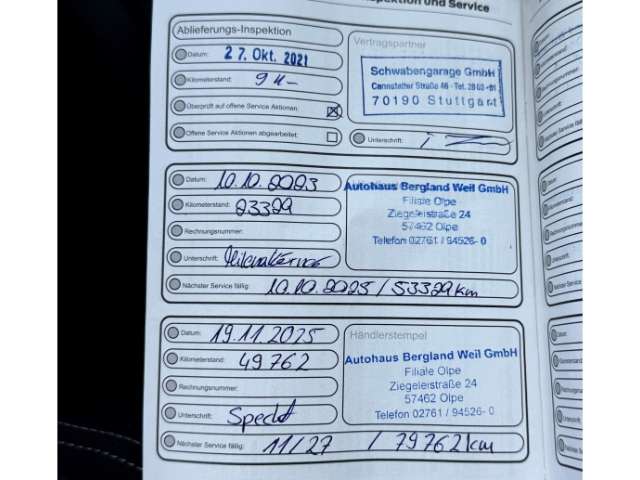 und Service
Ablieferungs-Inspektion
Datum: 27. Okt. 2021
Kilometerstand: 9
Überprüft auf offene Service Aktionen:
Offene Service Aktionen abgearbeitet:
Vertragspartner
Schwabengarage GmbH
Cannstatter Straße 46 - Tel.
70190 Stuttgart
Unterschrift:
Datum: 10.10.2023
Kilometerstand: 23329
Rechnungsnummer:
Unterschrift:
Nächster Service fällig: 10.10.2025 / 53329 km
Autohaus Bergland Weil GmbH
Filiale Olpe
Ziegeleistraße 24
57462 Olpe
Telefon 02761 / 94526-0
Datum: 19.11.2025
Kilometerstand: 49762
Rechnungsnummer:
Unterschrift: Specht
Nächster Service fällig: 11/27 / 79762 km
Händlerstempel
Autohaus Bergland Weil GmbH
Filiale Olpe
Ziegeleistraße 24
57462 Olpe
Telefon 02761 / 94526-0